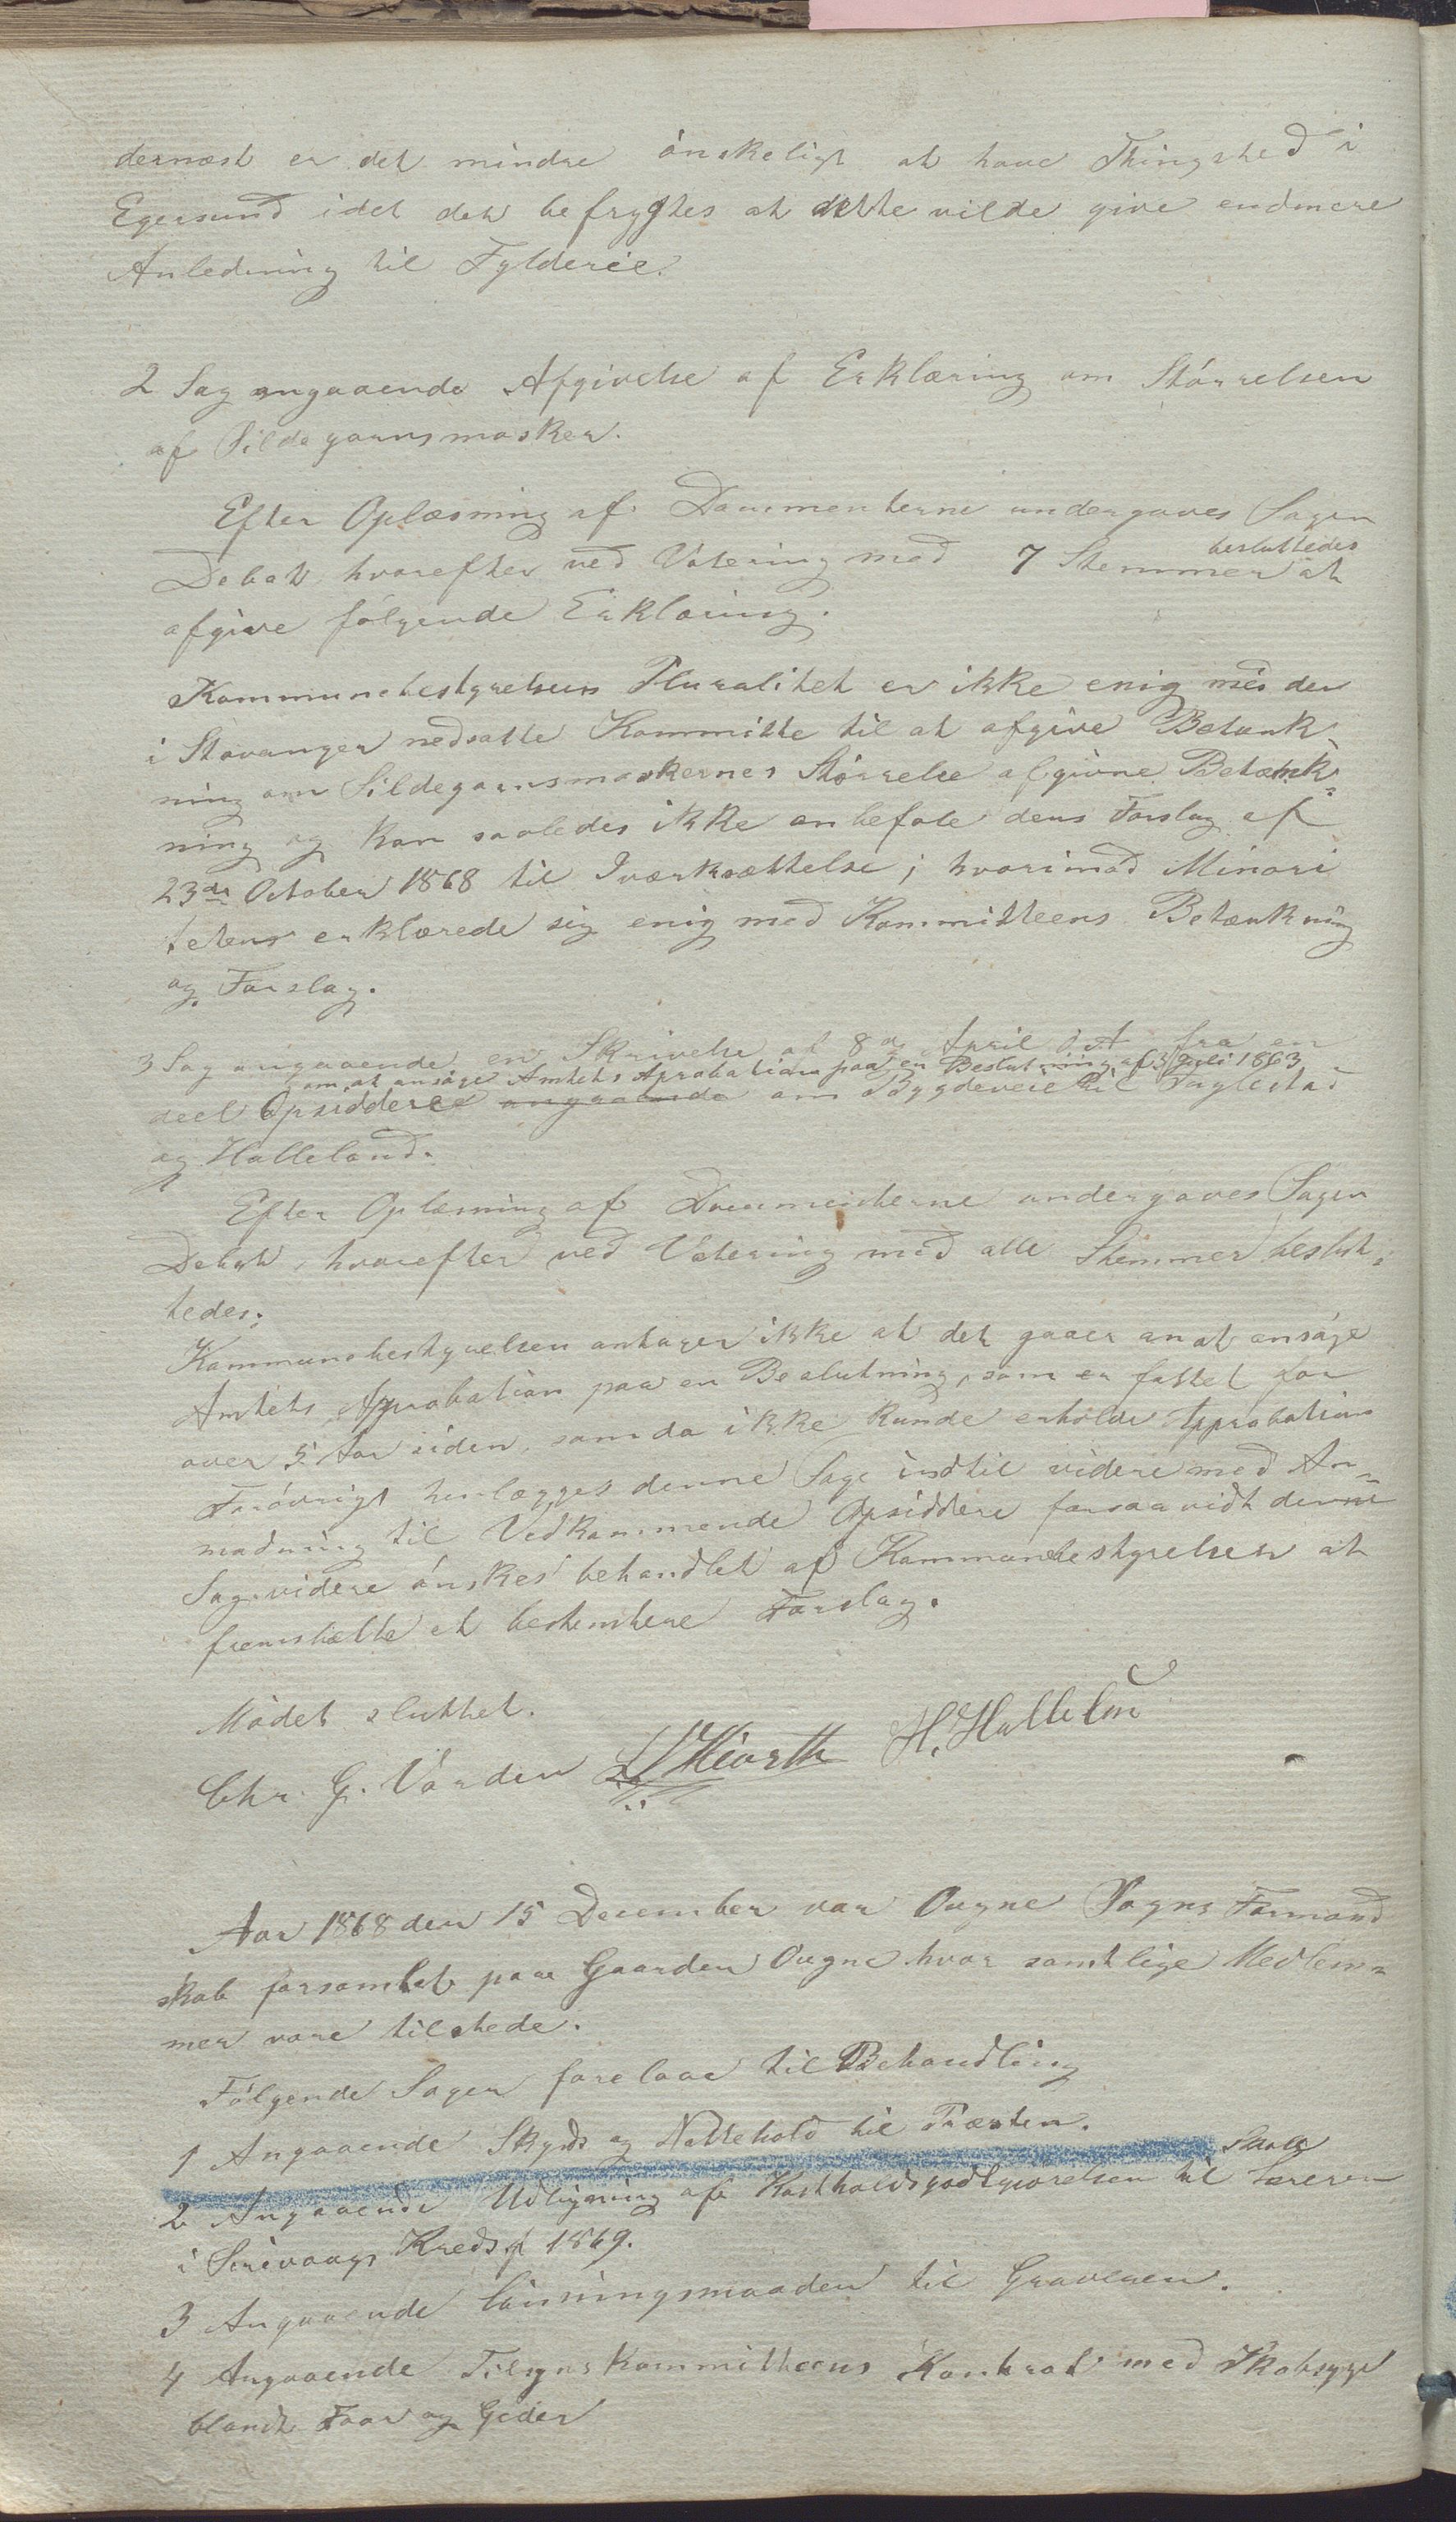 dernæst er det mindre ónskeligt at have Thingsted i
Egersund idet det befrygtes at dette vilde give endmere
Anledning til Fylderie.
2 Sag angaaende Afgivelse af Erklæring om Störrelsen
af Sildegarnsmasker.
Efter Oplæsning af Documenterne undergaves Sagen
Debat hvorefter ved Votering med 7 Stemmer besluttedes at
afgive fölgende Erklæring.
Kommunebestyrelsens Pluralitet er ikke enig med den
i Stavanger nedsatte Kommitte til at afgive Betænk-
ning om Sildegarnsmaskernes Störrelse afgivne Betænk-
ning og kan saaledes ikke anbefale dens Forslag af
23de October 1868 til Iværksættelse; hvorimod Minori
teten erklærede sig enig med Kommitteens Betænkning
og Forslag.
3 Sag angaaende en Skrivelse af 8de April fra en
om at ansöge Amtets Aprobation paa en Beslutning af 3 Juli 1863
deel Opsiddere angaaende om Bygdeveie til Fuglestad
og Halleland.
Efter Oplæsning af Documenterne undergaves Sagen
Debat, hvorefter ved Votering med alle Stemmer beslut-
tedes:
Kommunebestyrelsen antager ikke at det gaaer an at ansöge
Amtets Approbation paa en Beslutning, som er fattet for
over 5 Aar siden, som da ikke kunde erholde Approbation
Forövrigt henlægges denne Sag indtil videre med An-
modning til Vedkommende Opsiddere forsaavidt denne
Sag videre önskes behandlet af Kommunebestyrelsen at
fremsætte et bestemtere Forslag.
Mödet sluttet.
Chr. G. Varden Hiorth H. Hallelan
Aar 1868 den 15 December var Ougne Sogns Formand
skab forsamlet paa Gaarden Ougne hvor samtlige Medlem-
mer vare tilstede.
Fölgende Sager forelaae til Behandling
1 Angaaende Skyds og Nattehold til Præsten.
2 Angaaende Udligning af Kostholdsgodtgiörelsen til Skole
Læreren
i Sirevaags Kreds f 1869.
3 Angaaende Lönningsmaaden til Graveren.
4 Angaaende Tilsynskommitteens Kontrol med Skabsyge
blandt Faar og Geder